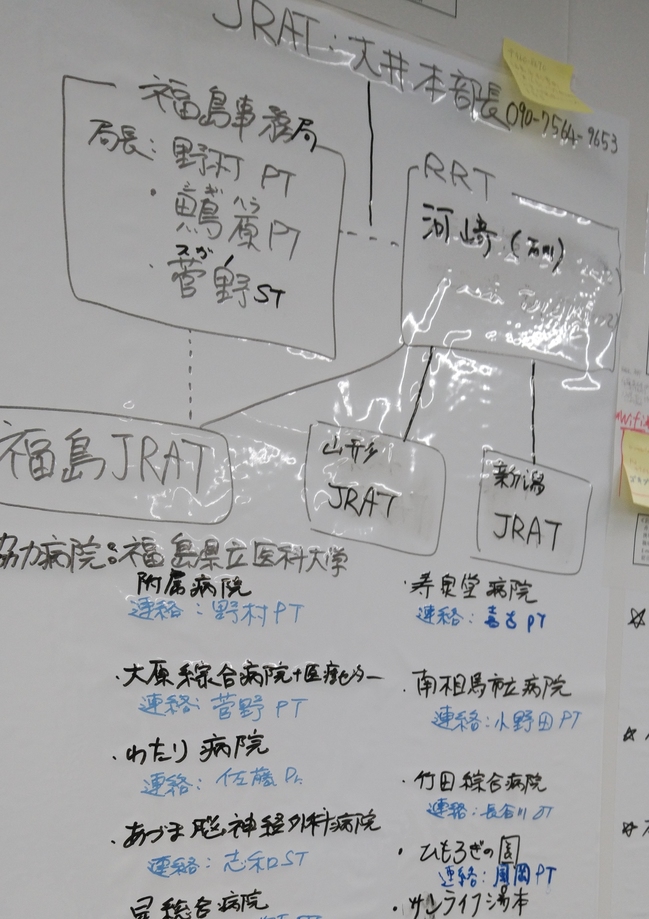 JRAT:大井本部長
090-7564-9653
福島事務局
局長:野村PT
・原PT
スガノ
・菅野ST
RRT
河崎(石川)
福島JRAT
山形
JRAT
新潟
JRAT
協力病院:福島県立医科大学
附属病院
連絡:野村PT
・大原綜合病院+医療センター
連絡:菅野PT
・わたり病院
連絡:佐藤
・あづま脳神経外科病院
連絡:志和ST
総合病院
・寿泉堂病院
連絡:喜古PT
・南相馬市立病院
連絡:小野田PT
・竹田綜合病院
連絡:長谷川OT
・ひもろぎの園
連絡:岡PT
・サンライフ湯本